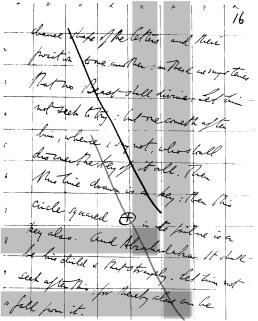 16
chance shape of the letters and their
position to one another: in these are mysteries
that no Beast shall divine. Let him
not seek to try: but one cometh after
him, whence I say not, who shall
discover the Key of it all. Then
this line drawn is a key: then this
circle squared ⊕ in its failure is a
key also. And Abrahadabra. It shall
be his child & that strangely. Let him not
seek after this; for thereby alone can he
fall from it.